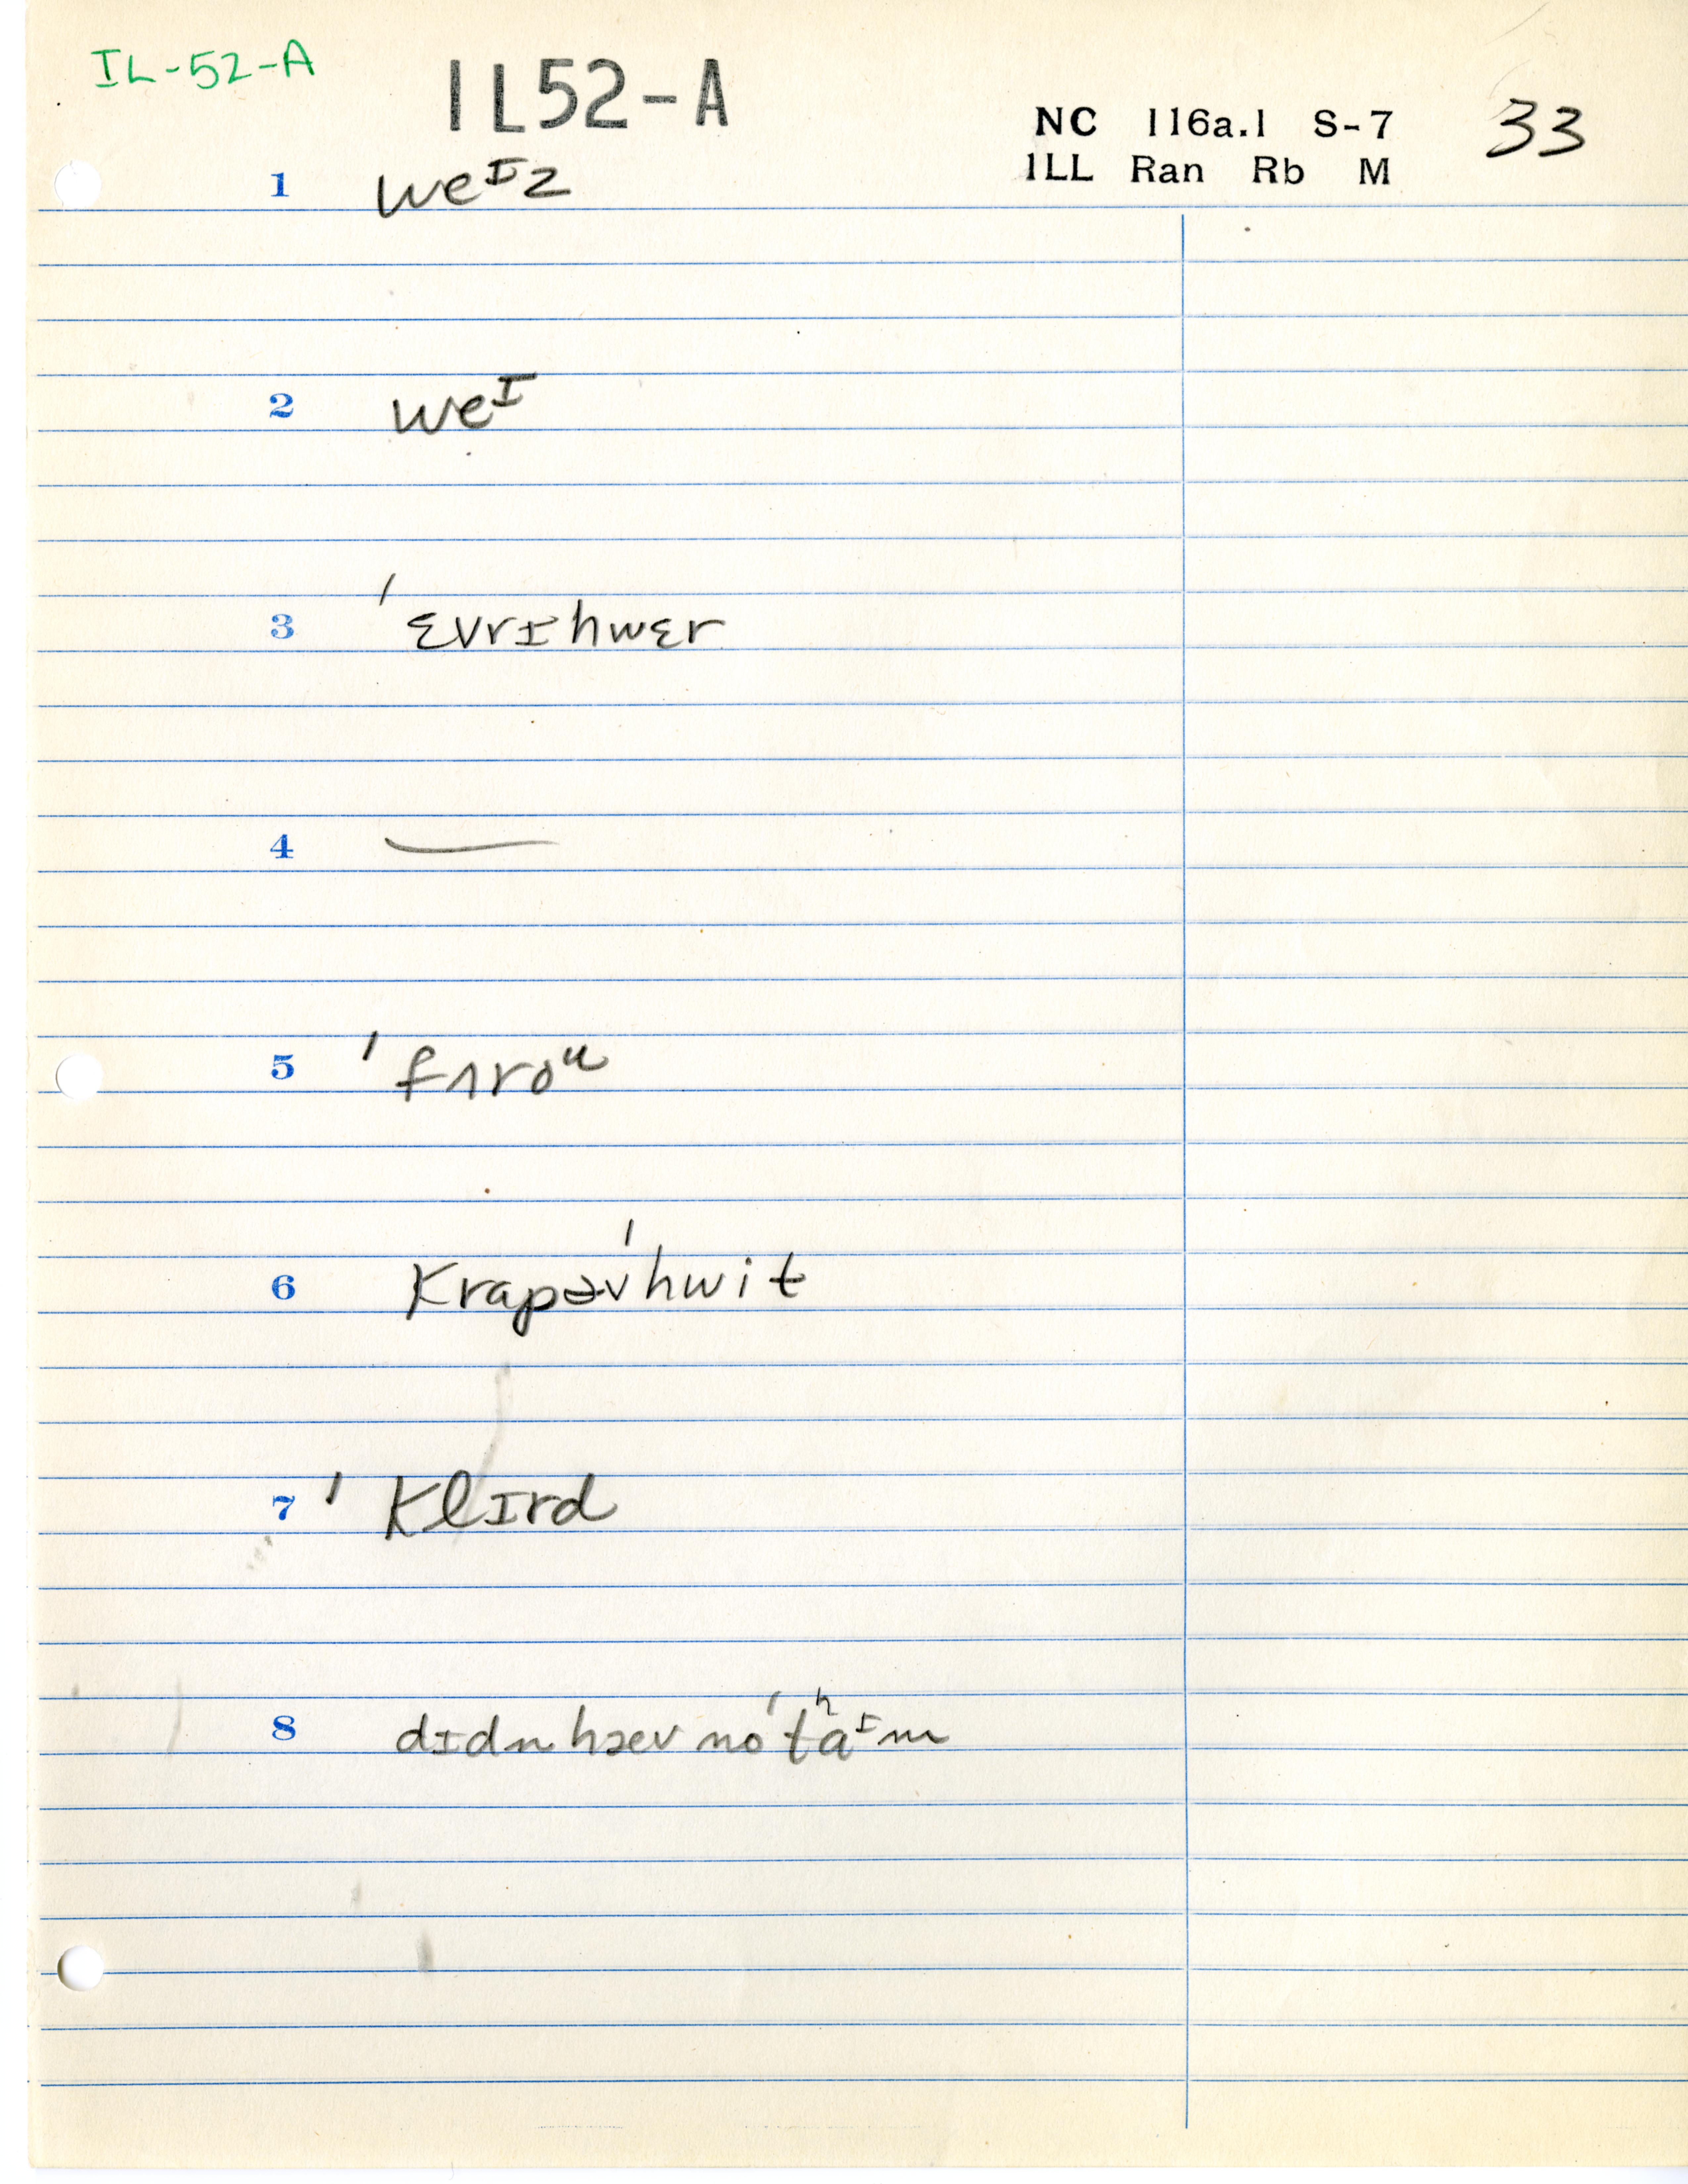 IL-52-A
IL52-A
NC 116a.1 S-7
ILL Ran Rb M
33
1 weᴵz
2 weᴵ
3 ˈɛvrɪhwɛr
4 —
5 ˈfʌroᵘ
6 krapəvˈhwit
7 ˈklɪrd
8 dɪdn hæv noˈtʰaᴵm